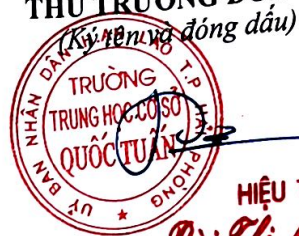 THỦ TRƯỞNG
(Ký tên và đóng dấu)
ỦY BAN NHÂN DÂN
T.P HẢI PHÒNG
TRƯỜNG
TRUNG HỌC CƠ SỞ
QUỐC TUẤN
HIỆU